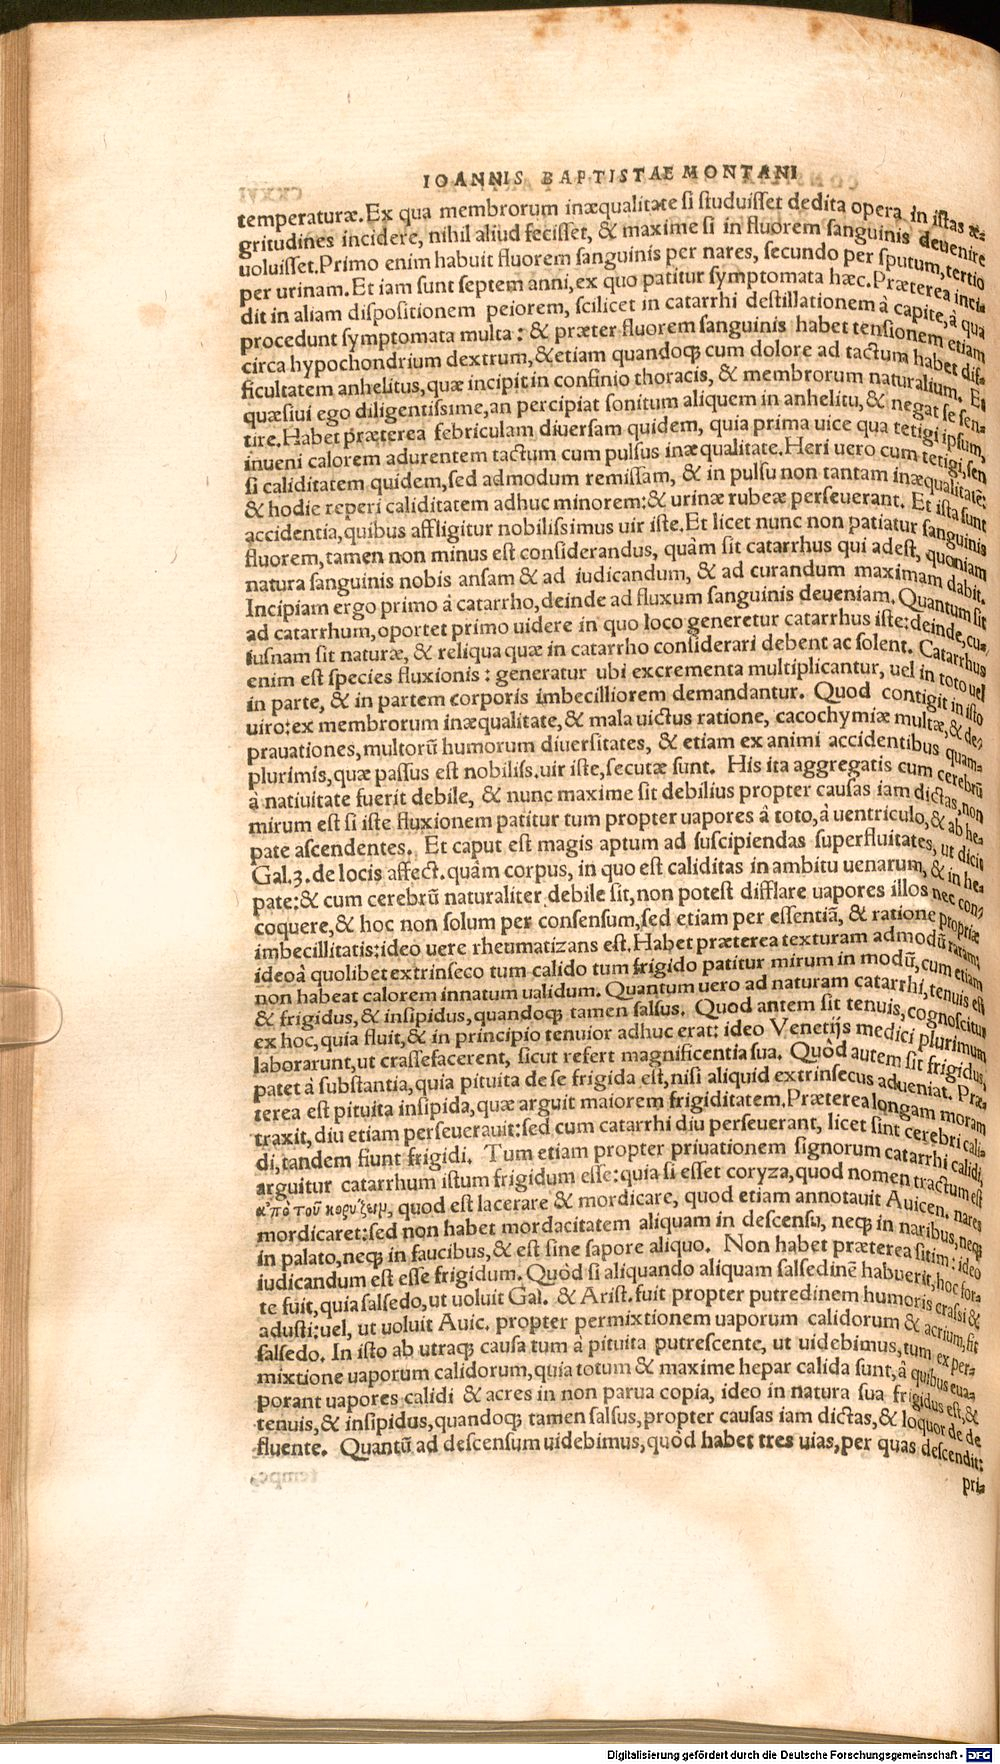 IOANNIS BAPTISTAE MONTANI
temperaturæ. Ex qua membrorum inæqualitate si studuisset dedita opera in istas æ-
gritudines incidere, nihil aliud fecisset, & maxime si in fluorem sanguinis deuenire
uoluisset. Primo enim habuit fluorem sanguinis per nares, secundo per sputum, tertio
per urinam. Et iam sunt septem anni, ex quo patitur symptomata hæc. Præterea inci-
dit in aliam dispositionem peiorem, scilicet in catarrhi destillationem à capite, à qua
procedunt symptomata multa: & præter fluorem sanguinis habet tensionem etiam
circa hypochondrium dextrum, & etiam quandoqꝫ cum dolore ad tactum habet dif-
ficultatem anhelitus, quæ incipit in confinio thoracis, & membrorum naturalium. Et
quæsiui ego diligentissime, an percipiat sonitum aliquem in anhelitu, & negat se sen-
tire. Habet præterea febriculam diuersam quidem, quia prima uice qua tetigi ipsum,
inueni calorem adurentem tactum cum pulsus inæqualitate. Heri uero cum tetigi, sen
si caliditatem quidem, sed admodum remissam, & in pulsu non tantam inæqualitatē:
& hodie reperi caliditatem adhuc minorem: & urinæ rubeæ perseuerant. Et ista sunt
accidentia, quibus affligitur nobilissimus uir iste. Et licet nunc non patiatur sanguinis
fluorem, tamen non minus est considerandus, quàm sit catarrhus qui adest, quoniam
natura sanguinis nobis ansam & ad iudicandum, & ad curandum maximam dabit.
Incipiam ergo primo à catarrho, deinde ad fluxum sanguinis deueniam. Quantum sit
ad catarrhum, oportet primo uidere in quo loco generetur catarrhus iste: deinde, cu-
iusnam sit naturæ, & reliqua quæ in catarrho considerari debent ac solent. Catarrhus
enim est species fluxionis: generatur ubi excrementa multiplicantur, uel in toto uel
in parte, & in partem corporis imbecilliorem demandantur. Quod contigit in isto
uiro: ex membrorum inæqualitate, & mala uictus ratione, cacochymiæ multæ, & de-
prauationes, multorū humorum diuersitates, & etiam ex animi accidentibus quam-
plurimis, quæ passus est nobiliss. uir iste, secutæ sunt. His ita aggregatis cum cerebrū
à natiuitate fuerit debile, & nunc maxime sit debilius propter causas iam dictas, non
mirum est si iste fluxionem patitur tum propter uapores à toto, à uentriculo, & ab he-
pate ascendentes. Et caput est magis aptum ad suscipiendas superfluitates, ut dicit
Gal. 3. de locis affect. quàm corpus, in quo est caliditas in ambitu uenarum, & in he-
pate: & cum cerebrū naturaliter debile sit, non potest difflare uapores illos nec con-
coquere, & hoc non solum per consensum, sed etiam per essentiā, & ratione propriæ
imbecillitatis: ideo uere rheumatizans est. Habet præterea texturam admodū raram,
ideo à quolibet extrinseco tum calido tum frigido patitur mirum in modū, cum etiam
non habeat calorem innatum ualidum. Quantum uero ad naturam catarrhi, tenuis est
& frigidus, & insipidus, quandoqꝫ tamen salsus. Quod antem sit tenuis, cognoscitur
ex hoc, quia fluit, & in principio tenuior adhuc erat: ideo Venetijs medici plurimum
laborarunt, ut crassefacerent, sicut refert magnificentia sua. Quòd autem sit frigidus,
patet à substantia, quia pituita de se frigida est, nisi aliquid extrinsecus adueniat. Præ-
terea est pituita insipida, quæ arguit maiorem frigiditatem. Præterea longam moram
traxit, diu etiam perseuerauit: sed cum catarrhi diu perseuerant, licet sint cerebri cali-
di, tandem fiunt frigidi. Tum etiam propter priuationem signorum catarrhi calidi,
arguitur catarrhum istum frigidum esse: quia si esset coryza, quod nomen tractum est
ἀπὸ τοῦ κορύζειμ, quod est lacerare & mordicare, quod etiam annotauit Auicen. nares
mordicaret: sed non habet mordacitatem aliquam in descensu, neqꝫ in naribus, neqꝫ
in palato, neqꝫ in faucibus, & est sine sapore aliquo. Non habet præterea sitim: ideo
iudicandum est esse frigidum. Quòd si aliquando aliquam salsedinē habuerit, hoc for-
te fuit, quia salsedo, ut uoluit Gal. & Arist. fuit propter putredinem humoris crassi &
adusti: uel, ut uoluit Auic. propter permixtionem uaporum calidorum & acrium, fit
salsedo. In isto ab utraqꝫ causa tum à pituita putrescente, ut uidebimus, tum ex per-
mixtione uaporum calidorum, quia totum & maxime hepar calida sunt, à quibus eua-
porant uapores calidi & acres in non parua copia, ideo in natura sua frigidus est, &
tenuis, & insipidus, quandoqꝫ tamen salsus, propter causas iam dictas, & loquor de de
fluente. Quantū ad descensum uidebimus, quòd habet tres uias, per quas descendit:
pri-
Digitalisierung gefördert durch die Deutsche Forschungsgemeinschaft - DFG